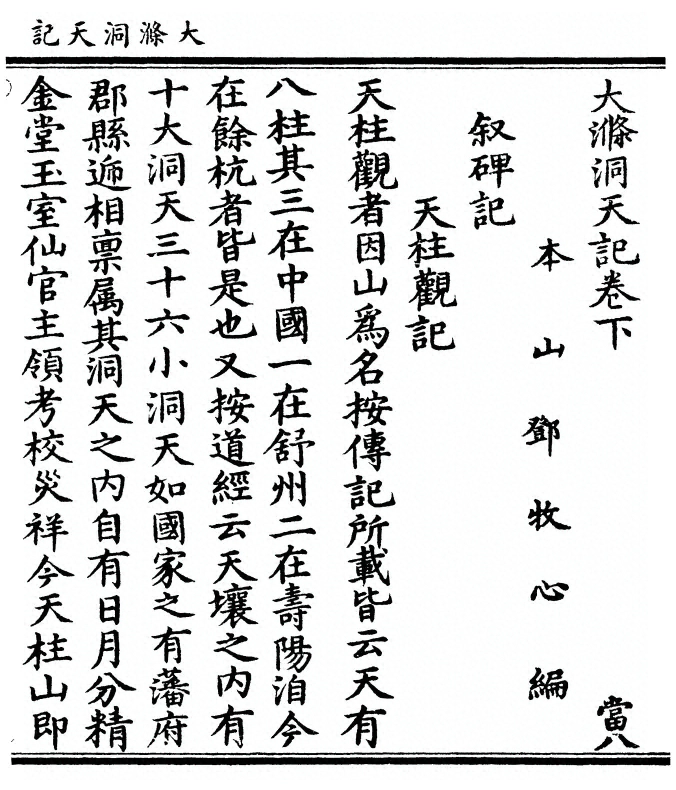 大滌洞天記
大滌洞天記卷下
當八
本山鄧牧心編
叙碑記
天柱觀記
天柱觀者因山爲名按傳記所載皆云天有
八柱其三在中國一在舒州二在壽陽洎今
在餘杭者皆是也又按道經云天壤之內有
十大洞天三十六小洞天如國家之有藩府
郡縣遞相禀属其洞天之內自有日月分精
金堂玉室仙官主領考校災祥今天柱山即